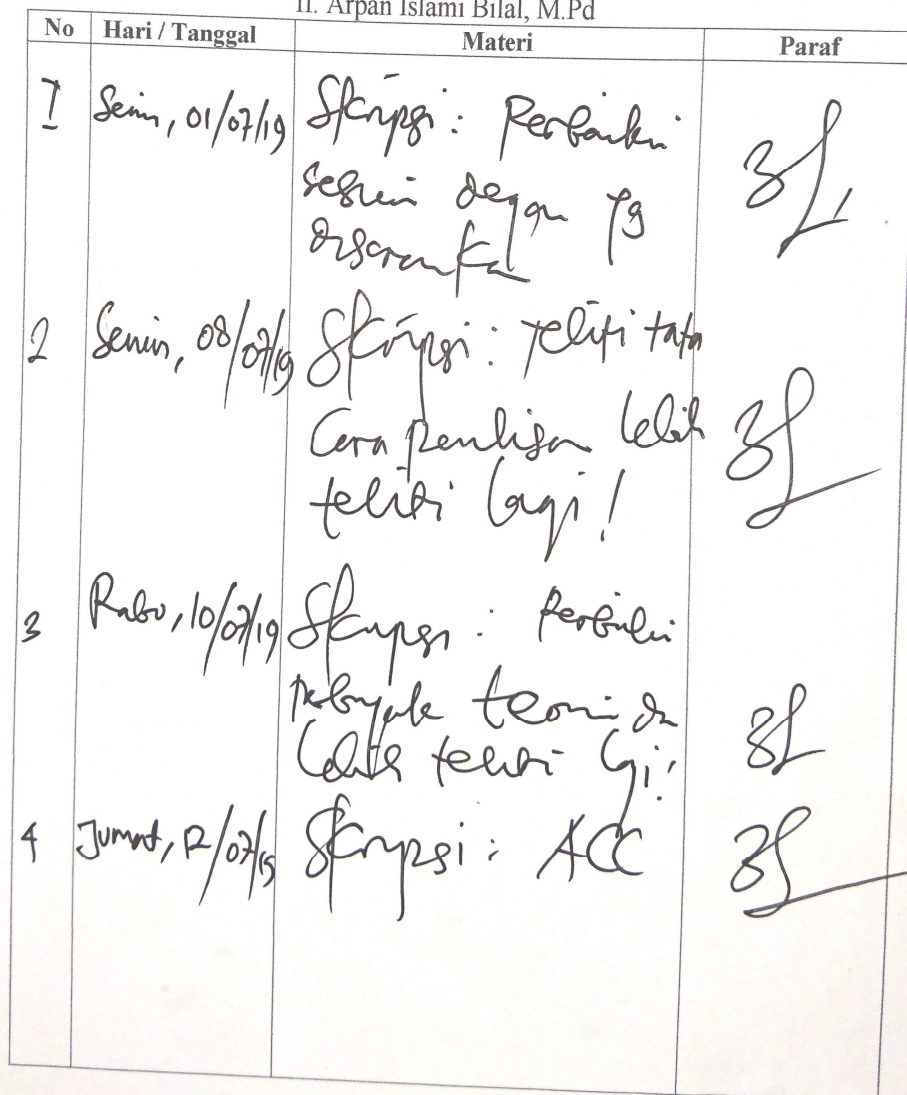 II. Arpan Islami Bilal, M.Pd
No Hari / Tanggal Materi Paraf
1 Senin, 01/07/19 Skripsi : Perbaiki
sesuai dengan yg
disarankan
2 Senin, 08/07/19 Skripsi : teliti tata
Cara penulisan lebih
teliti lagi !
3 Rabu, 10/07/19 Skripsi : Perbaiki
teori dan
lebih teliti lagi !
4 Jumat, 12/07/19 Skripsi : ACC